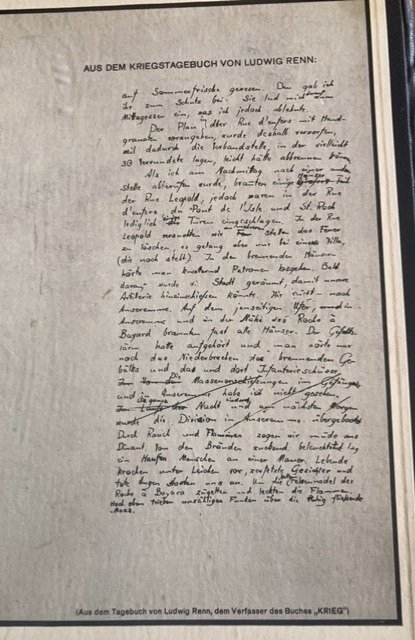 AUS DEM KRIEGSTAGEBUCH VON LUDWIG RENN:
auf Sommerfrische gewesen. Den gab ich
ihr zum Schutz bei. Sie lud mich zum
Mittagessen ein, was ich jedoch ablehnte.
Der Plan, der Rue d'enfers mit Hand-
granaten vorzugehen, wurde deshalb verworfen,
weil dadurch die Verbandstelle, in der vielleicht
50 Verwundete lagen, leicht hätte abbrennen
Als ich am Nachmittag nach einer
stelle abberufen wurde, brannten einige Häuser
der Rue Leopold, jedoch waren in der Rue
d'enfers, du Pont de l'Isle und St. Roch
lediglich Türen eingeschlagen. In der Rue
Leopold versuchten wir Stellen das Feuer
zu löschen, es gelang aber nur bei einer Villa,
(die noch steht). In den brennenden Häusern
hörte man knatternd Patronen losgehen. Bald
darauf wurde d. Stadt geräumt, damit unsere
Artillerie hineinschießen könnte. Wir rückten nach
Anseremme. Auf dem jenseitigen Ufer, und in
Anseremme und in der Nähe des Roche à
Bayard brannten fast alle Häuser. Der Gefechts-
lärm hatte aufgehört und man hörte nur
noch das Niederbrechen des brennenden Ge-
bälks und das und dort Infanterieschüsse.
Die Massenerschießungen im Gefängnis
und Anseremme habe ich nicht gesehen.
Die ganze Nacht und am nächsten Morgen
wurde die Division in Anseremme übergesetzt
Durch Rauch und Flammen zogen wir müde aus
Dinant. Von den Bränden zuckend beleuchtet lag
ein Haufen Menschen an einer Mauer. Lebende
krochen unter Leichen vor, zerfetzte Gesichter und
tote Augen starrten uns an. Um die Felsennadel des
Roche à Bayard züngelten und leckten die Flammen.
Hoch oben trieben unzählige Funken über die ruhig fließende
Maas.
(Aus dem Tagebuch von Ludwig Renn, dem Verfasser des Buches „KRIEG")